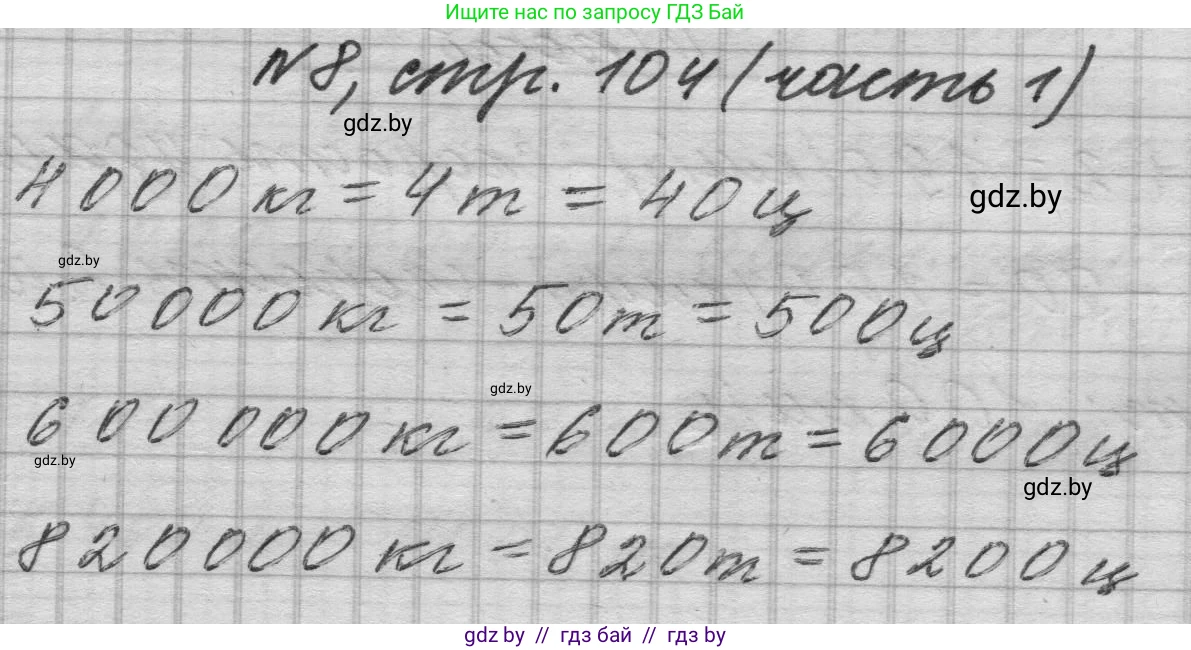 Ищите нас по запросу ГДЗ Бай
№8, стр. 104 (часть 1)
gdz.by
4000 кг = 4 т = 40 ц
gdz.by
gdz.by
50 000 кг = 50 т = 500 ц
gdz.by
600 000 кг = 600 т = 6000 ц
gdz.by
gdz.by
820 000 кг = 820 т = 8200 ц
gdz.by // гдз бай // гдз by